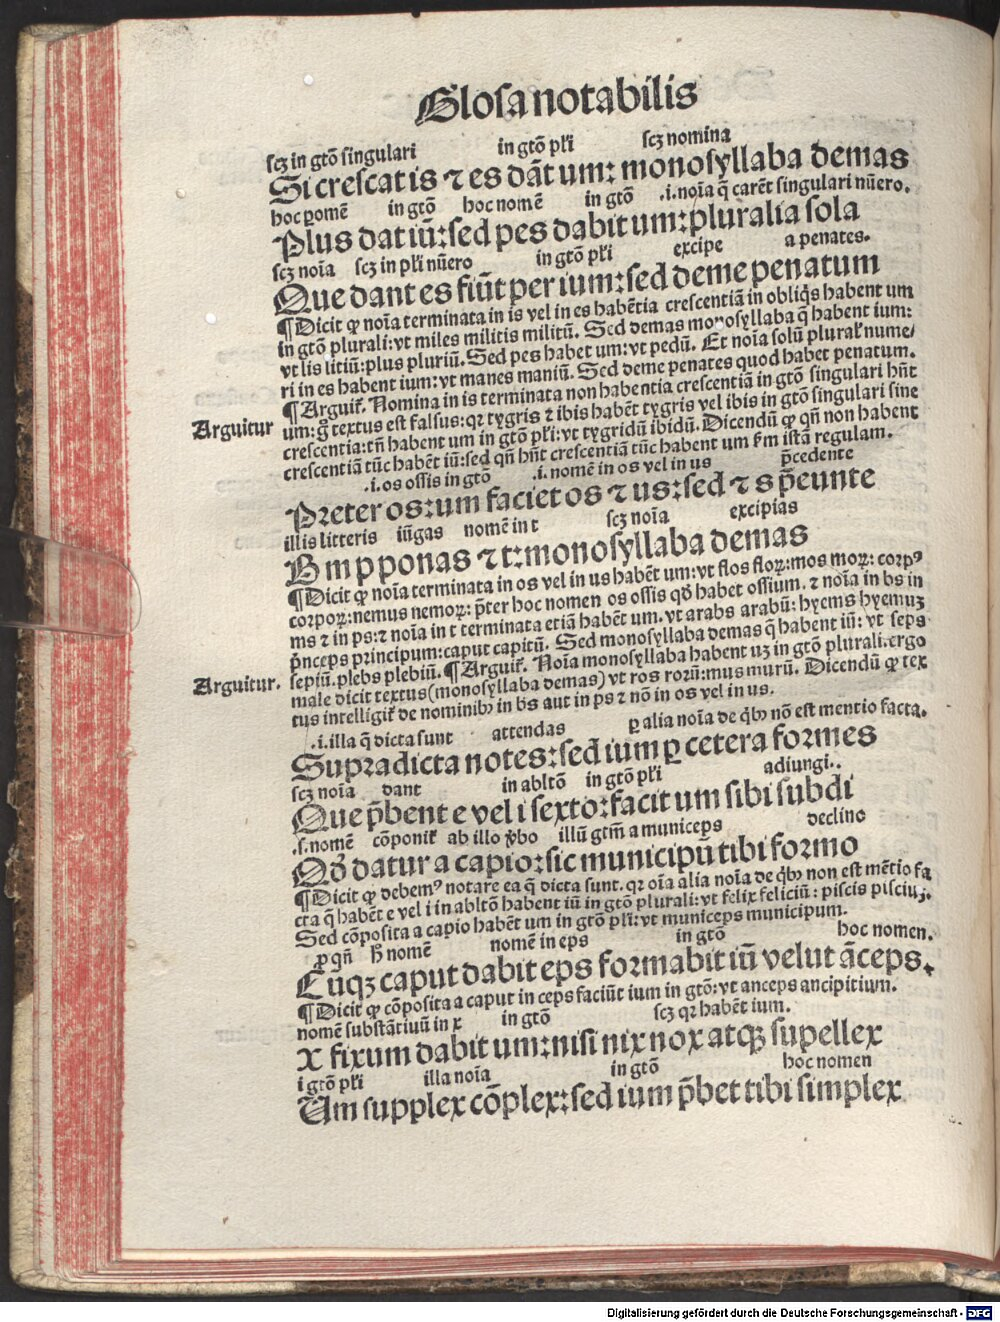 Glosa notabilis
scꝫ in gtō singulari in gtō pl̄i scꝫ nomina
Si crescat is ⁊ es dāt um: monosyllaba demas
hoc ꝓomē in gtō hoc nomē in gtō .i. noīa q̄ carēt singulari nūero.
Plus dat iū: sed pes dabit um: pluralia sola
scꝫ noīa scꝫ in pl̄i nūero in gtō pl̄i excipe a penates.
Que dant es fiūt per ium: sed deme penatum
¶ Dicit ꝙ noīa terminata in is vel in es habētia crescentiā in obliq̄s habent um
in gtō plurali: vt miles militis militū. Sed demas monosyllaba q̄ habent ium:
vt lis litiū: plus pluriū. Sed pes habet um: vt pedū. Et noīa solū plural' nume/
ri in es habent ium: vt manes maniū. Sed deme penates quod habet penatum.
¶ Arguit̄. Nomina in is terminata non habentia crescentiā in gtō singulari hn̄t
Arguitur
um: g̊ textus est falsus: qꝛ tygris ⁊ ibis habēt tygris vel ibis in gtō singulari sine
crescentia: tn̄ habent um in gtō pl̄i: vt tygridū ibidū. Dicendū ꝙ qn̄ non habent
crescentiā tūc habēt iū: sed qn̄ hn̄t crescentiā tūc habent um ẜm istā regulam.
.i. os ossis in gtō .i. nomē in os vel in us p̄cedente
Preter os: um faciet os ⁊ us: sed ⁊ s p̄eunte
illis litteris iūgas nomē in t scꝫ noīa excipias
B m p ponas ⁊ t: monosyllaba demas
¶ Dicit ꝙ noīa terminata in os vel in us habēt um: vt flos floꝝ: mos moꝝ: corpꝰ
corpoꝝ: nemus nemoꝝ: p̄ter hoc nomen os ossis qd̄ habet ossium. ⁊ noīa in bs in
ms ⁊ in ps: ⁊ noīa in t terminata etiā habēt um. vt arabs arabū: hyems hyemuꝫ
p̄nceps principum: caput capitū. Sed monosyllaba demas q̄ habent iū: vt seps
sepiū. plebs plebiū. ¶ Arguit̄. Noīa monosyllaba habent uꝫ in gtō plurali. ergo
Arguitur.
male dicit textus (monosyllaba demas) vt ros rorū: mus murū. Dicendū ꝙ tex
tus intelligit̄ de nominibꝰ in bs aut in ps ⁊ nō in os vel in us.
.i. illa q̄ dicta sunt attendas ꝑ alia noīa de qͥbꝰ nō est mentio facta.
Supradicta notes: sed ium ꝑ cetera formes
scꝫ noīa dant in abltō in gtō pl̄i adiungi..
Que p̄bent e vel i sexto: facit um sibi subdi
.s. nomē cōponit̄ ab illo v̄bo illū gtm̄ a municeps declino
Qd̄ datur a capio: sic municipū tibi formo
¶ Dicit ꝙ debemꝰ notare ea q̄ dicta sunt. qꝛ oīa alia noīa de qͥbꝰ non est mētio fa
cta q̄ habēt e vel i in abltō habent iū in gtō plurali: vt felix feliciū: piscis pisciuꝫ.
Sed cōposita a capio habēt um in gtō pl̄i: vt municeps municipum.
ꝓ qn̄ h̄ nomē nomē in eps in gtō hoc nomen.
Cūqꝫ caput dabit eps formabit iū velut āceps.
¶ Dicit ꝙ cōposita a caput in ceps faciūt ium in gtō: vt anceps ancipitium.
nomē substātiuū in x in gtō scꝫ qꝛ habēt ium.
X fixum dabit um: nisi nix nox atqꝫ supellex
i gtō pl̄i illa noīa in gtō hoc nomen
Um supplex cōplex: sed ium p̄bet tibi simplex
Digitalisierung gefördert durch die Deutsche Forschungsgemeinschaft - DFG